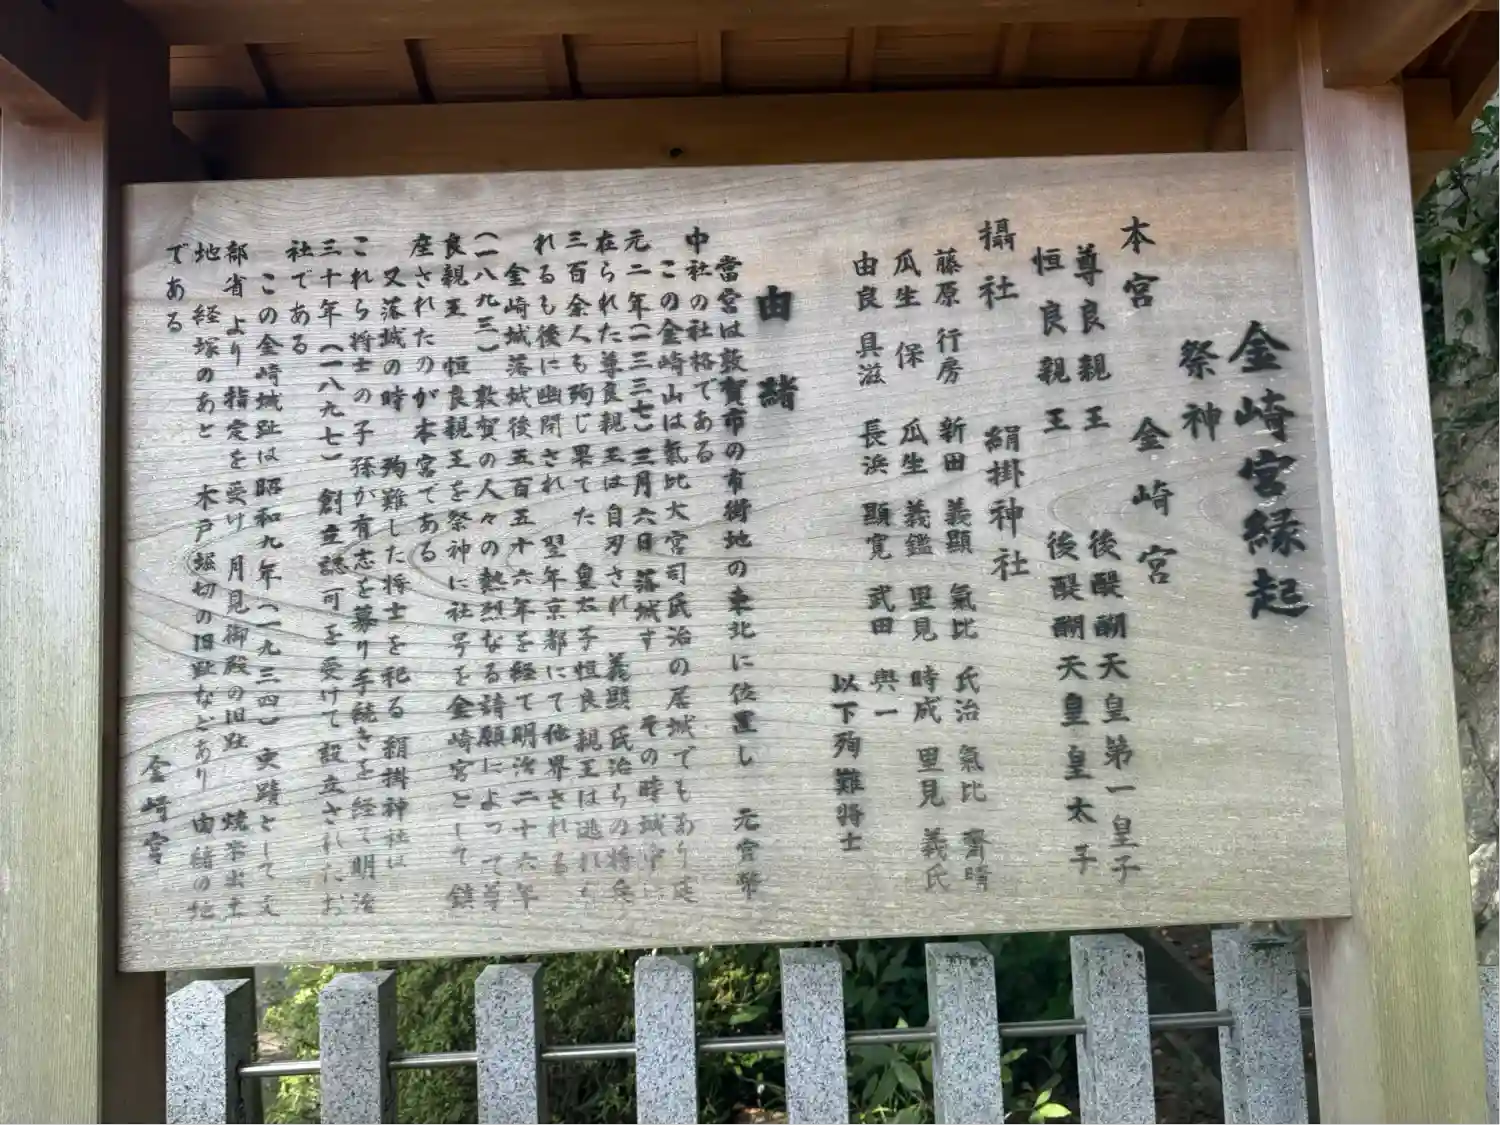 金崎宮縁起
祭神
金崎宮
本宮
尊良親王　後醍醐天皇第一皇子
恒良親王　後醍醐天皇皇太子
摂社　絹掛神社
藤原　行房　新田　義顕　氣比　氏治　氣比　齊晴
瓜生　保　瓜生　義鑑　里見　時成　里見　義氏
由良　具滋　長浜　顕寛　武田　與一
以下殉難将士
由緒
當宮は敦賀市の市街地の東北に位置し　元官幣
中社の社格である
この金崎山は氣比大宮司氏治の居城でもあり延
元二年（一三三七）三月六日落城す　その時城中に
在られた尊良親王は自刃され　義顕　氏治らの将兵
三百余人も殉じ果てた　皇太子恒良親王は逃れら
れるも後に幽閉され　翌年京都にて他界される
金崎城落城後五百五十六年を経て明治二十六年
（一八九三）敦賀の人々の熱烈なる請願によって尊
良親王　恒良親王を祭神に社号を金崎宮として鎮
座されたのが本宮である
又落城の時　殉難した将士を祀る　絹掛神社は
これら将士の子孫が有志を募り手続きを経て明治
三十年（一八九七）創立認可を受けて設立されたお
社である
この金崎城趾は昭和九年（一九三四）史蹟として文
部省より指定を受け　月見御殿の旧趾　焼米出土
地　経塚のあと　木戸堀切の旧趾などあり　由緒の地
である
金崎宮